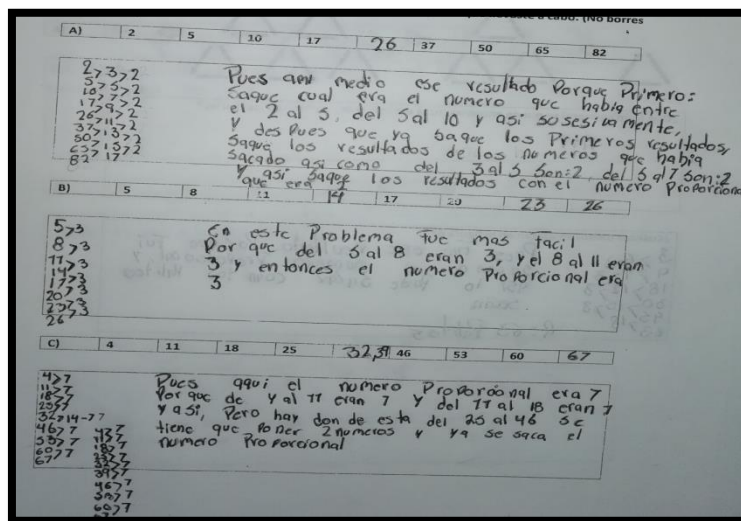 a cabo. (No borres
A) 2 5 10 17 26 37 50 65 82
2>3>2
5>5>2
10>7>2
17>9>2
26>11>2
37>13>2
50>15>2
65>17
82
Pues me medio ese resultado Porque Primero:
Saque cual era el numero que habia entre
el 2 al 5, del 5 al 10 y asi susesivamente,
y despues que ya saque los Primeros resultados,
saque los resultados de los numeros que habia
sacado asi como del 3 al 5 son:2, del 5 al 7 son:2
y asi saque los resultados con el numero Proporcional
que era
B) 5 8 11 14 17 20 23 26
5>3
8>3
11>3
14>3
17>3
20>3
23>3
26
En este Problema fue mas facil
Por que del 5 al 8 eran 3, y el 8 al 11 eran
3 y entonces el numero Proporcional era
3
C) 4 11 18 25 32,39 46 53 60 67
4>7
11>7
18>7
25>7
32>14-7 7
46>7
53>7
60>7
67
4>7
11>7
18>7
25>7
32>7
39>7
46>7
53>7
60>7
Pues aqui el numero Proporcional era 7
Por que de 4 al 11 eran 7 y del 11 al 18 eran 7
y asi, Pero hay don de esta del 25 al 46 se
tiene que Poner 2 numeros y ya se saca el
numero Proporcional